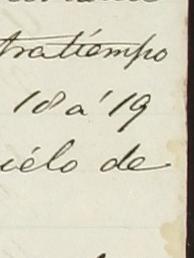 tratiempo
18 á 19
iélo de